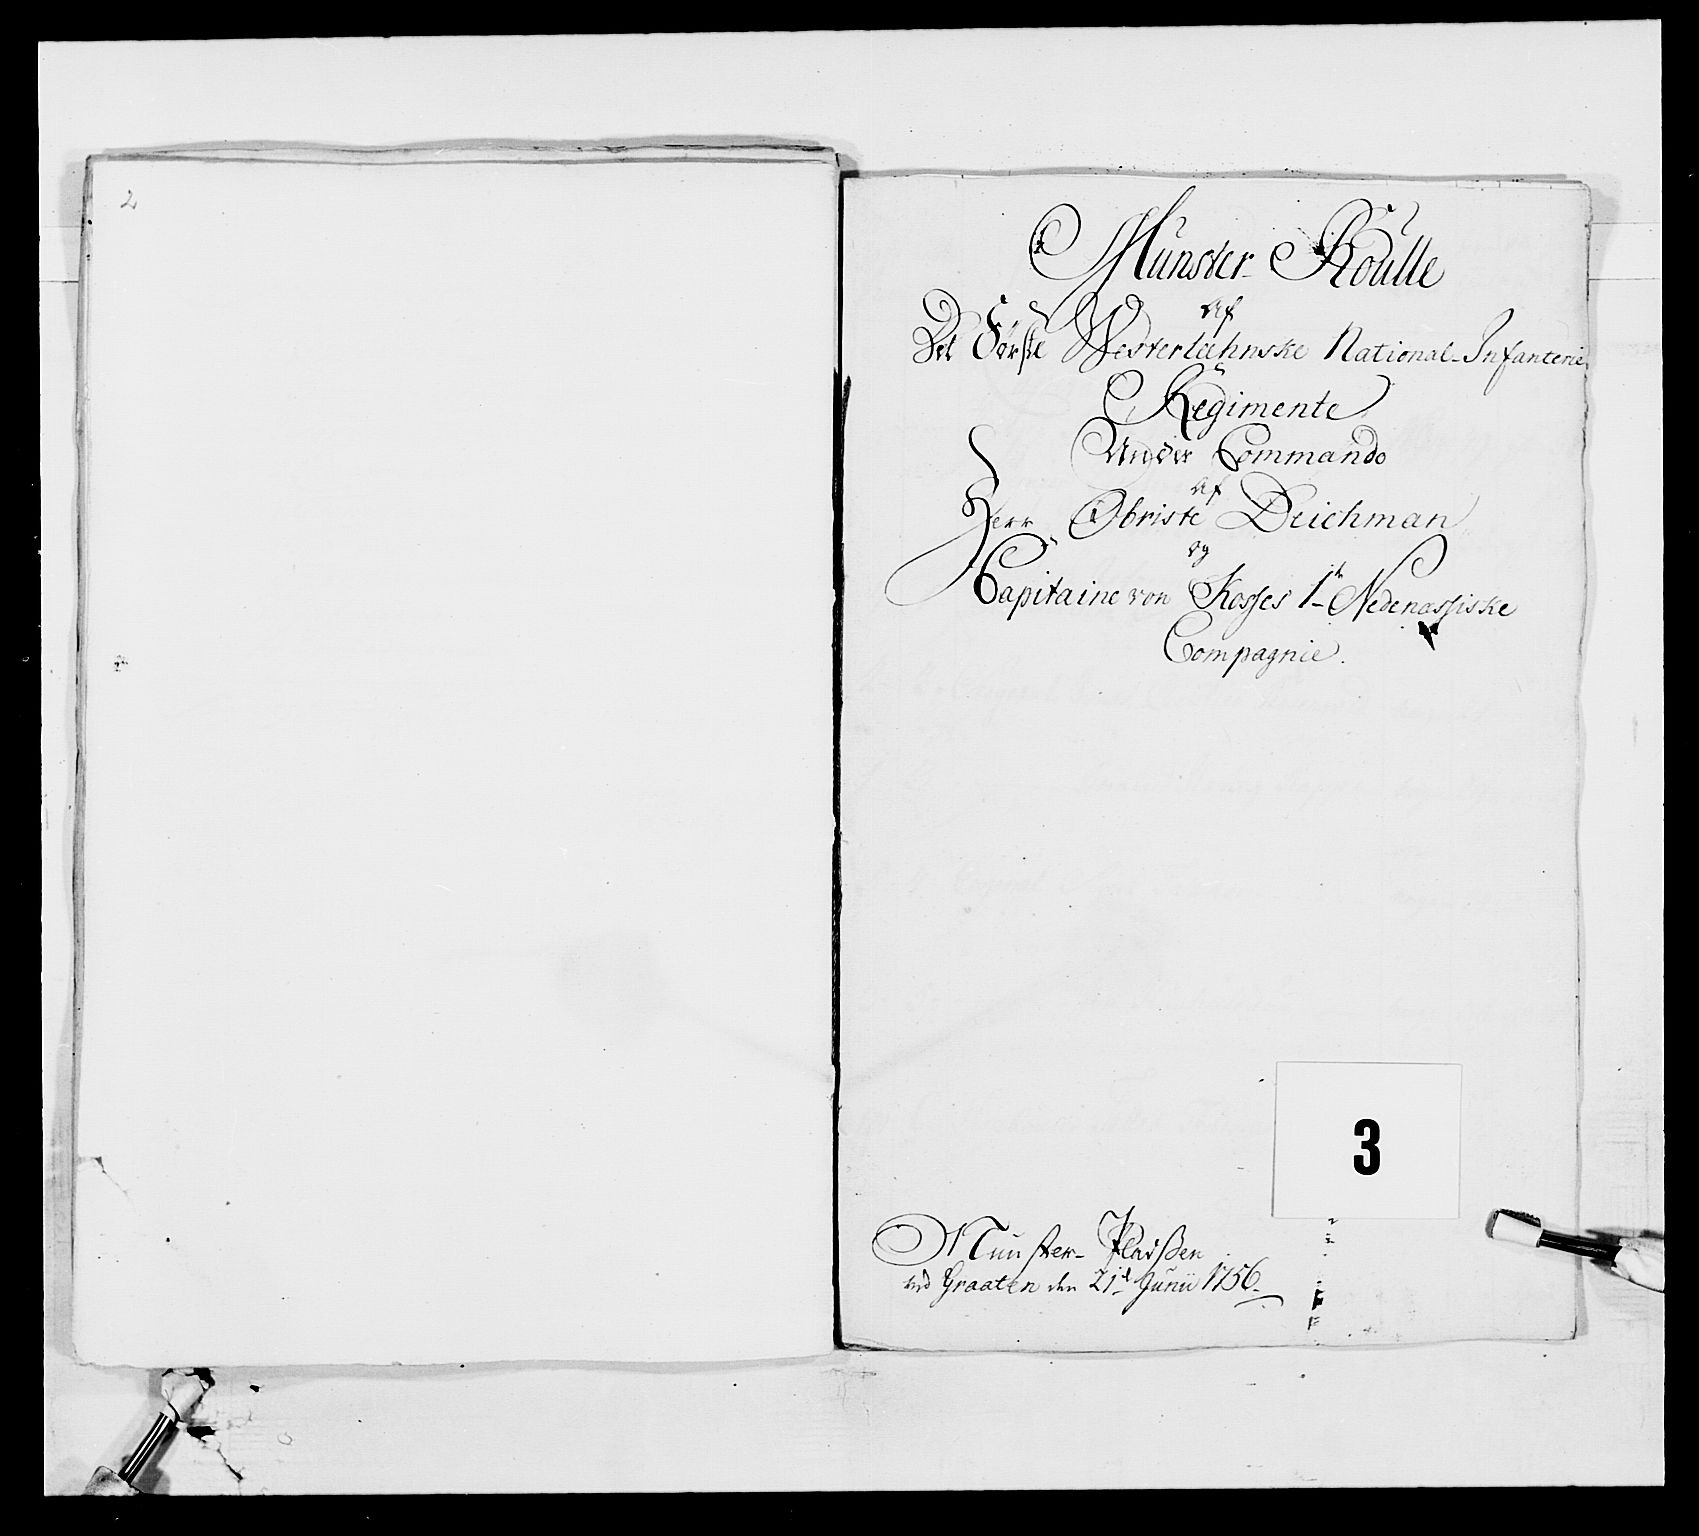 2
Munster-Roulle
Af
Det Første Westerlehnske National-Infanterie
Regimente
Under Commando
Af
Herr Obriste Deichman
og
Capitaine von Kosses 1te Nedenæssiske
Compagnie.
3
Munster-Pladsen
ved Graaten den 21de Junii 1756.